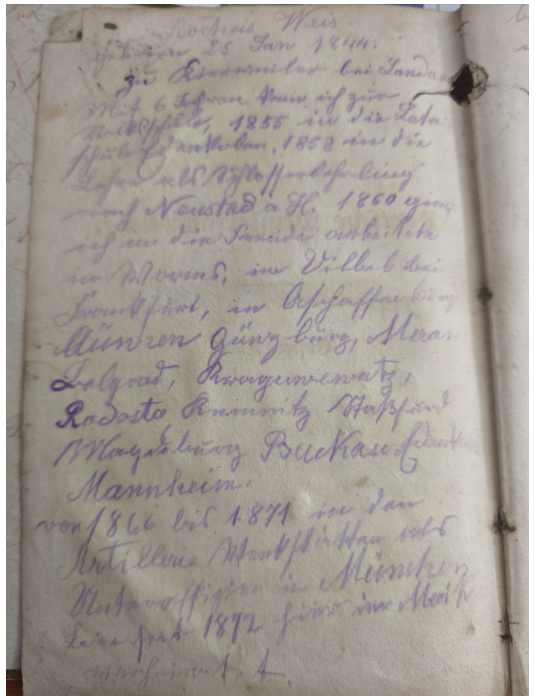 Weis.
geboren 25 Jan 1844.
zu Kirrweiler bei Landau
Mit 6 Jahren kam ich zur
Volksschule, 1855 in die Latein
schule Edenkoben, 1858 in die
Lehre als Schlosserlehrling
nach Neustad a H. 1860 ging
ich in die Fremde arbeitete
in Worms, in Vilbel bei
Frankfurt, in Aschaffenburg
München Günzburg, Meran
Belgrad, Kragujewatz,
Rodosto Kemnitz Staßfurd
Magdeburg Buckau
Mannheim.
von 1866 bis 1871 in den
Artillerie Werkstätten als
Unteroffizier in München
seit 1872 hier in
verheirat